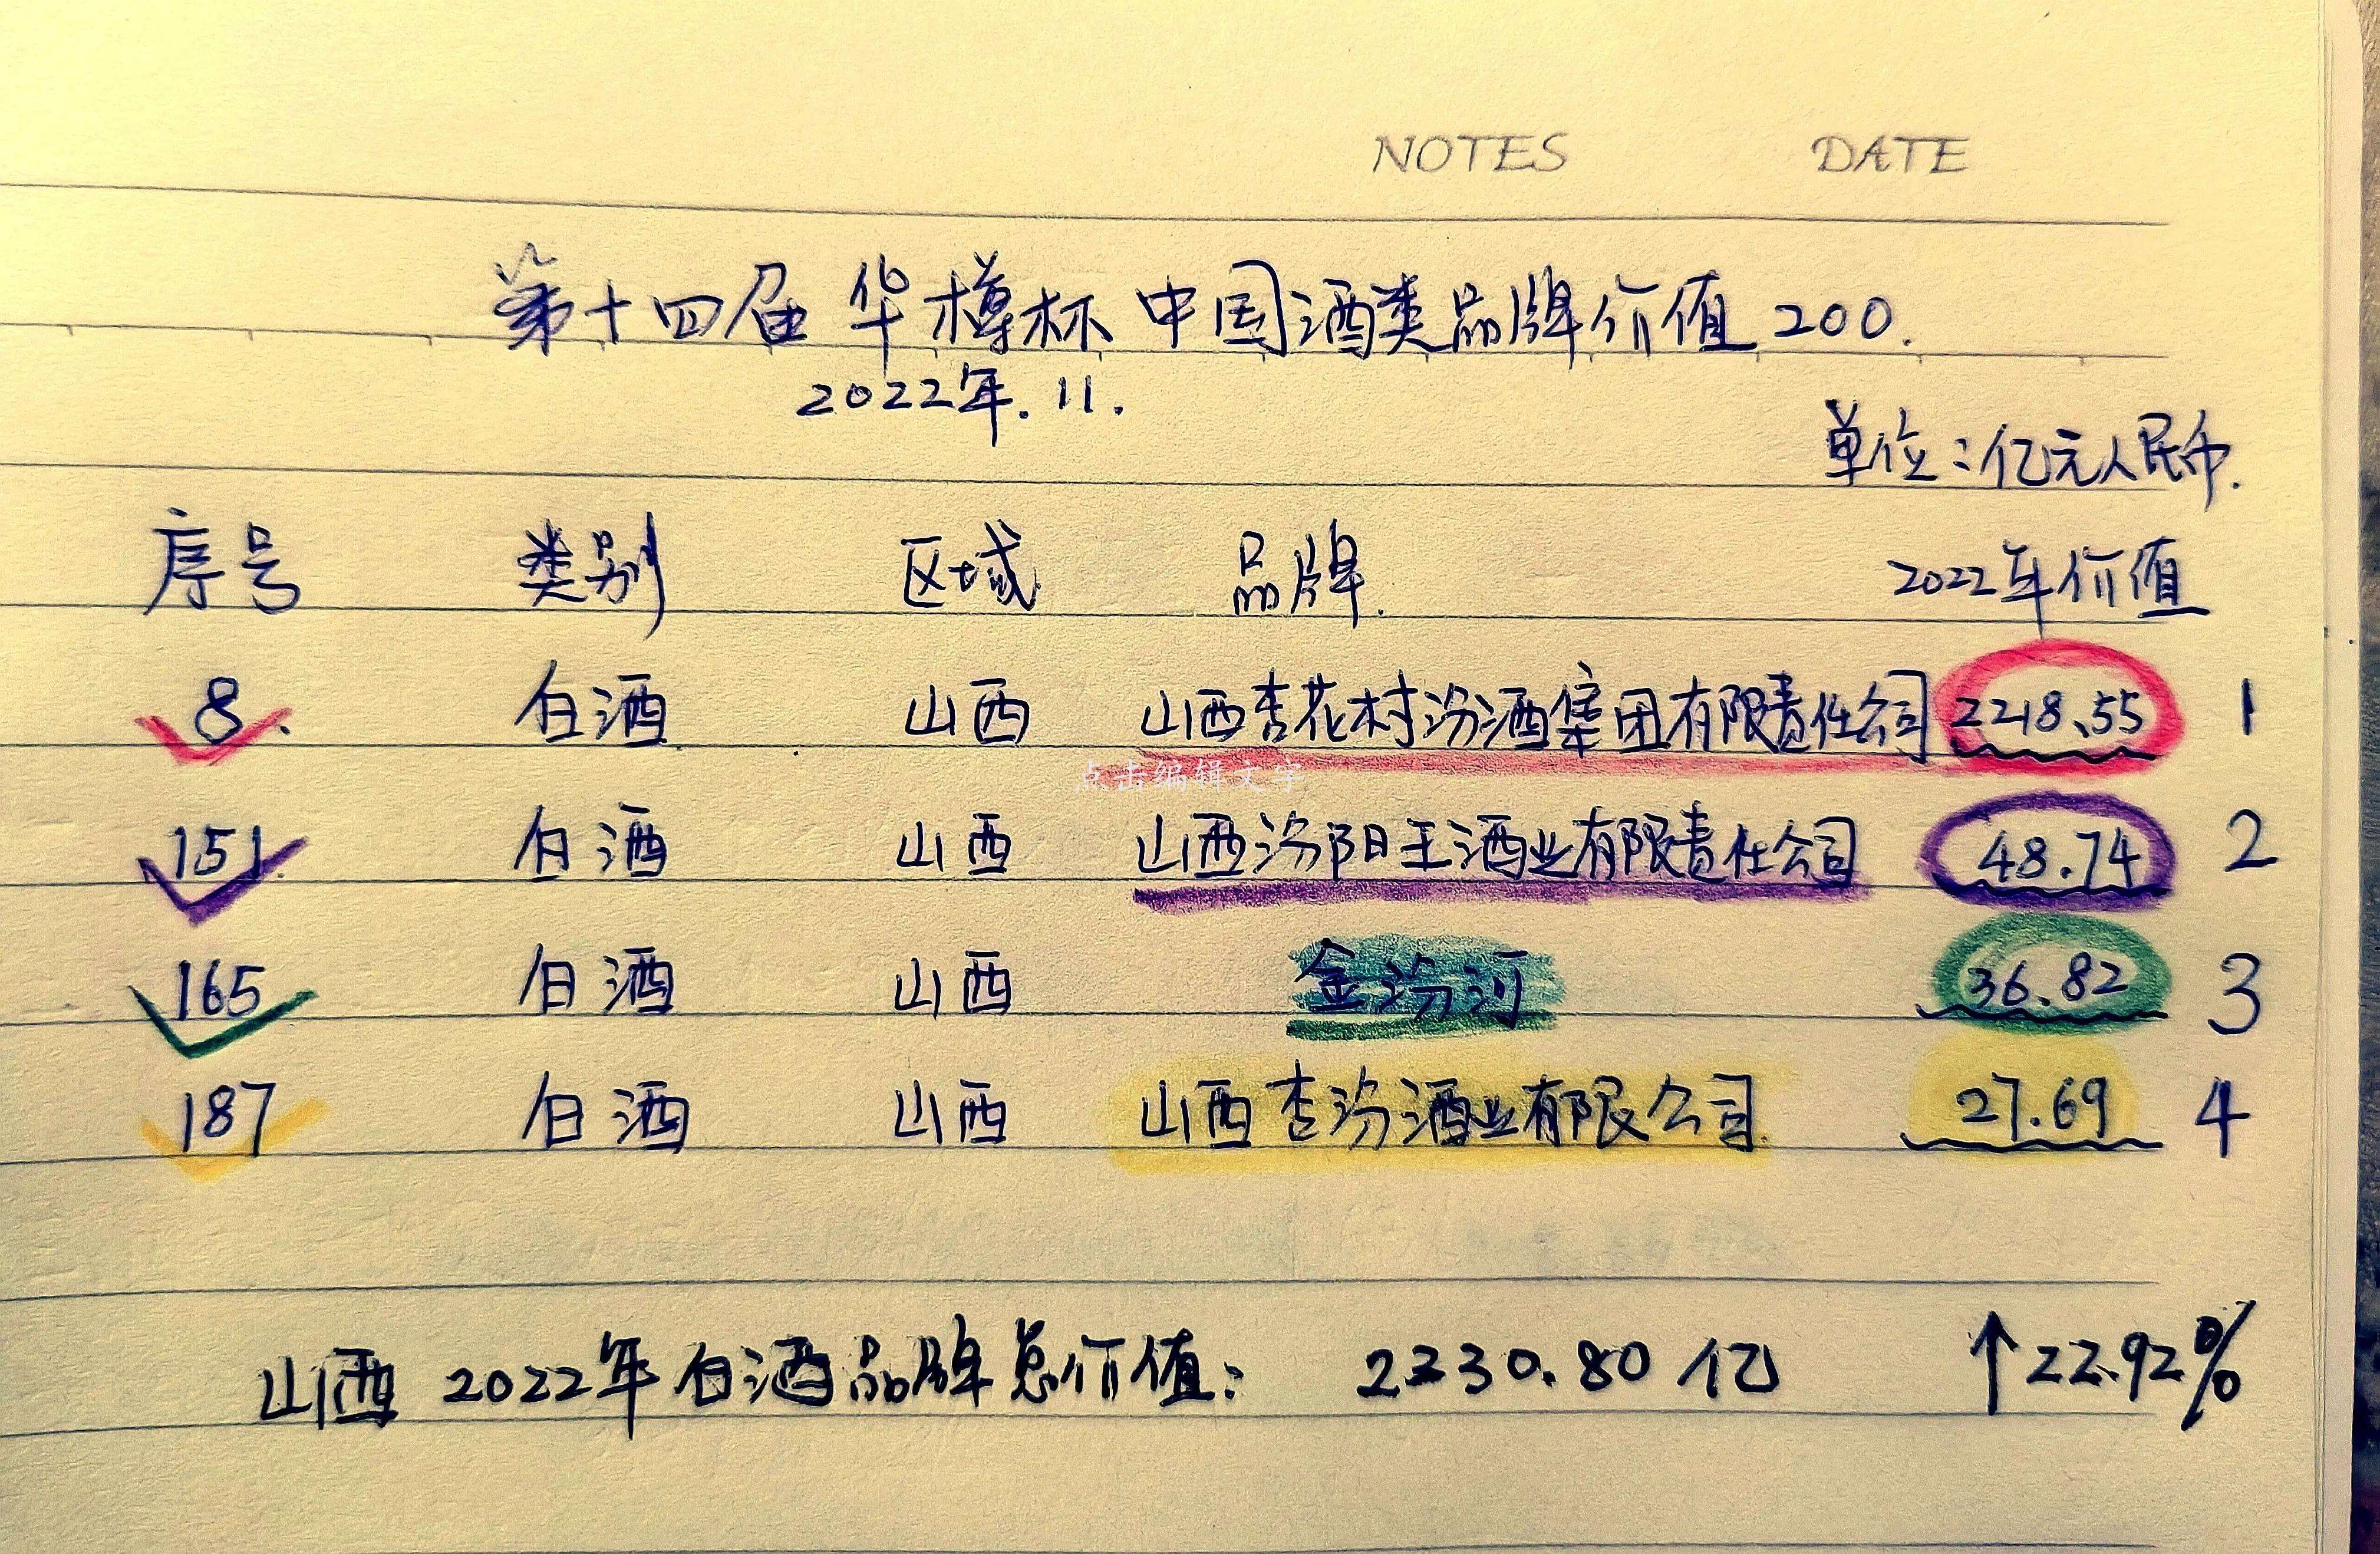 NOTES DATE
第十四届 华樽杯 中国酒类品牌价值 200.
2022年.11.
单位:亿元人民币.
序号 类别 区域 品牌. 2022年价值
8. 白酒 山西 山西杏花村汾酒集团有限责任公司 2218.55 1
点击编辑文字
151. 白酒 山西 山西汾阳王酒业有限责任公司 48.74 2
165 白酒 山西 金汾河 36.82 3
187 白酒 山西 山西杏汾酒业有限公司. 27.69 4
山西 2022年白酒品牌总价值: 2330.80 亿 ↑22.92%